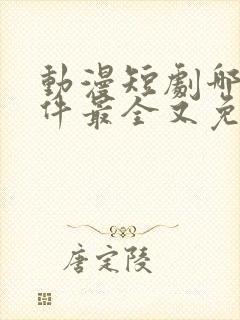 動漫短劇哪
件最全又免
唐定陵